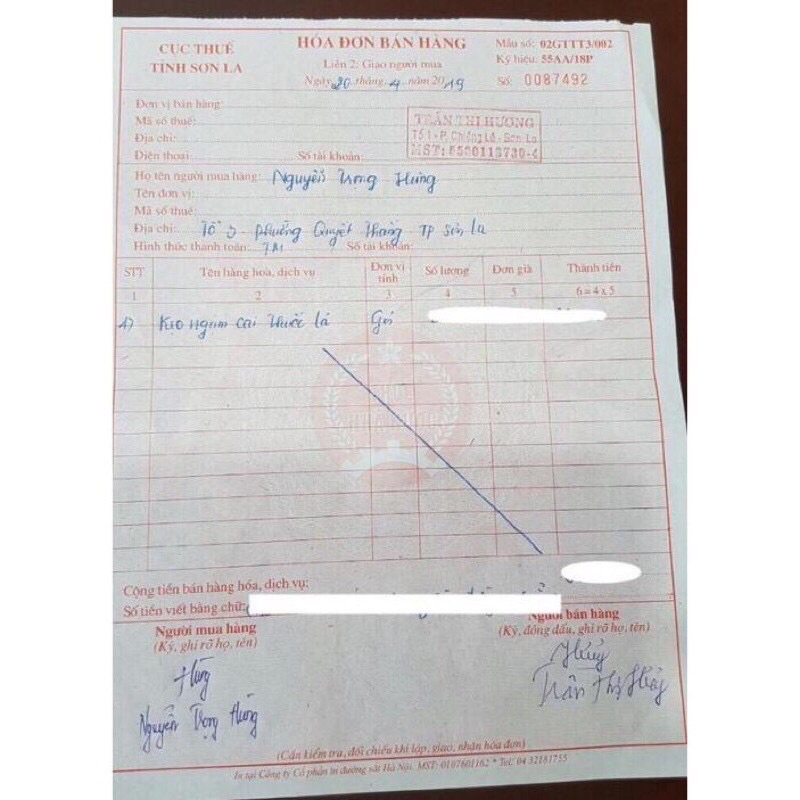 CỤC THUẾ
TỈNH SƠN LA
HÓA ĐƠN BÁN HÀNG
Liên 2: Giao người mua
Ngày 20 tháng 4 năm 2019
Mẫu số: 02GTTT3/002
Ký hiệu: 55AA/18P
Số: 0087492
Đơn vị bán hàng:
Mã số thuế:
Địa chỉ:
Điện thoại: Số tài khoản:
TRẦN THỊ HƯƠNG
Tổ 1 - P. Chiềng Lề - Sơn La
MST: 5500113730-4
Họ tên người mua hàng: Nguyễn Trọng Hưng
Tên đơn vị:
Mã số thuế:
Địa chỉ: Tổ 3 Phường Quyết Thắng TP Sơn La
Hình thức thanh toán: TM Số tài khoản:
STT Tên hàng hoá, dịch vụ Đơn vị tính Số lượng Đơn giá Thành tiền
1 2 3 4 5 6=4x5
1) Kẹo ngậm cai thuốc lá Gói
Cộng tiền bán hàng hóa, dịch vụ:
Số tiền viết bằng chữ:
Người mua hàng
(Ký, ghi rõ họ, tên)
Hưng
Nguyễn Trọng Hưng
Người bán hàng
(Ký, đóng dấu, ghi rõ họ, tên)
Thủy
Trần Thị Thủy
(Cần kiểm tra, đối chiếu khi lập, giao, nhận hóa đơn)
In tại Công ty Cổ phần in đường sắt Hà Nội. MST: 0107601162 * Tel: 04 32181755